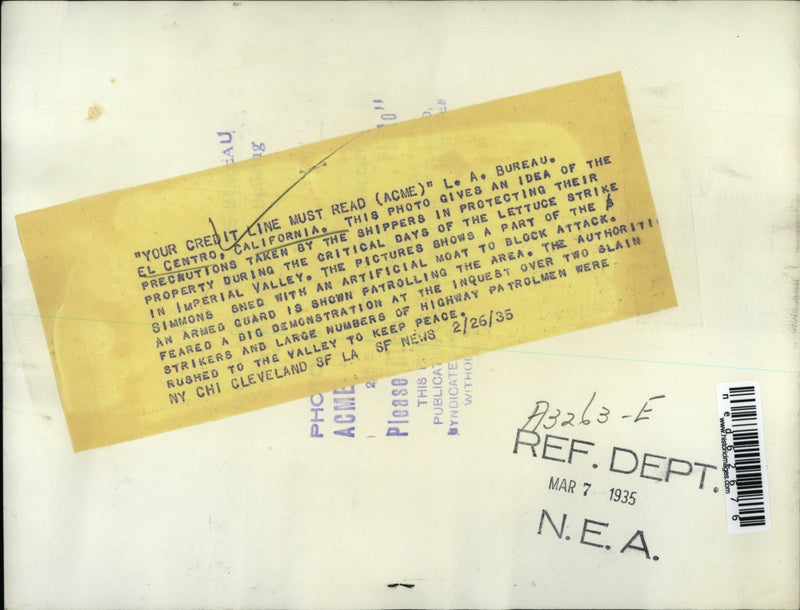 "YOUR CREDIT LINE MUST READ (ACME)" L. A. BUREAU.
EL CENTRO, CALIFORNIA. THIS PHOTO GIVES AN IDEA OF THE
PRECNUTIONS TAKEN BY THE SHIPPERS IN PROTECTING THEIR
PROPERTY DURING THE CRITICAL DAYS OF THE LETTUCE STRIKE
IN IMPERIAL VALLEY. THE PICTURES SHOWS A PART OF THE
SIMMONS SHED WITH AN ARTIFICIAL MOAT TO BLOCK ATTACK.
AN ARMED GUARD IS SHOWN PATROLLING THE AREA. THE AUTHORITI
FEARED A BIG DEMONSTRATION AT THE INQUEST OVER TWO SLAIN
STRIKERS AND LARGE NUMBERS OF HIGHWAY PATROLMEN WERE
RUSHED TO THE VALLEY TO KEEP PEACE.
NY CHI CLEVELAND SF LA SF NEWS 2/26/35
EAU,
PHO
ACME
Please
THIS
PUBLICAT
SYNDICATE
WITHOU
A3263-E
REF. DEPT.
MAR 7 1935
N.E.A.
www.historicimages.com
ned62676